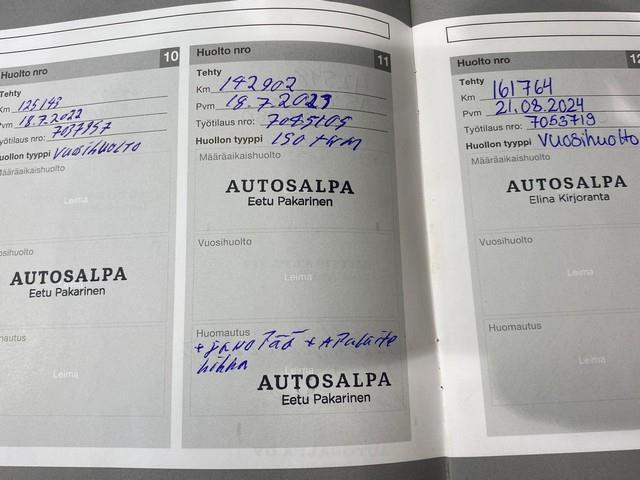 Huolto nro 10
Tehty
Km 125143
Pvm 18.7.2022
Työtilaus nro: 7037957
Huollon tyyppi Vuosihuolto
Määräaikaishuolto
Leima
osihuolto
AUTOSALPA
Eetu Pakarinen
mautus
Leima
Huolto nro 11
Tehty
Km 142902
Pvm 18.7.2023
Työtilaus nro: 7045105
Huollon tyyppi 150 tkm
Määräaikaishuolto
AUTOSALPA
Eetu Pakarinen
Vuosihuolto
Leima
Huomautus
+ jakopää + apulaite
hihna
Leima
AUTOSALPA
Eetu Pakarinen
Huolto nro 12
Tehty
Km 161764
Pvm 21.08.2024
Työtilaus nro: 7053719
Huollon tyyppi Vuosihuolto
Määräaikaishuolto
AUTOSALPA
Elina Kirjoranta
Vuosihuolto
Leima
Huomautus
Leima